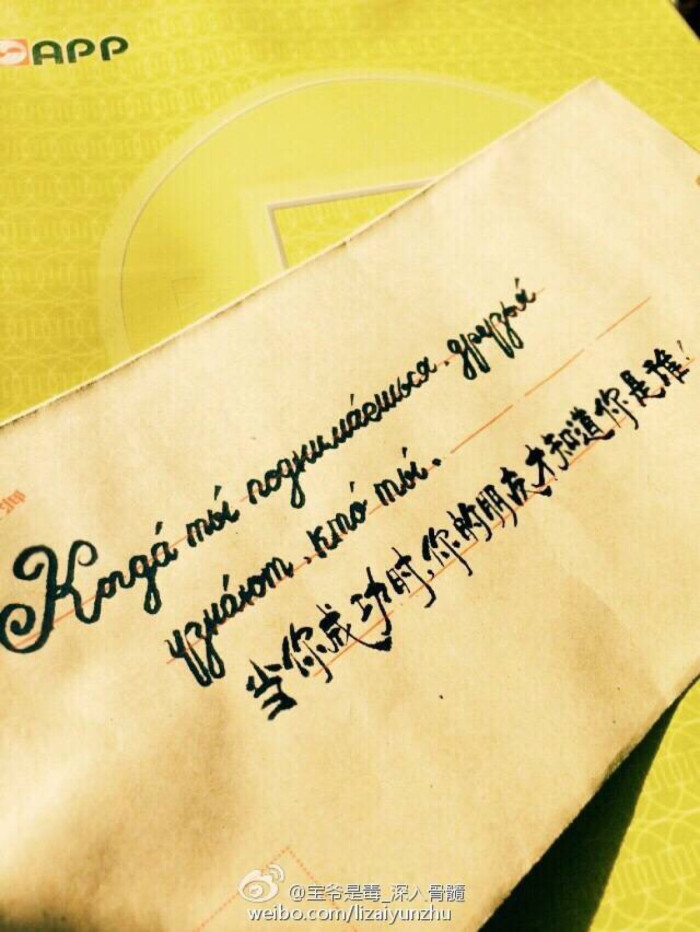 APP
Когда́ ты́ поднима́ешься, друзья́
узна́ют, кто́ ты́.
当你成功时,你的朋友才知道你是谁!
@宝爷是毒_深入骨髓
weibo.com/lizaiyunzhu